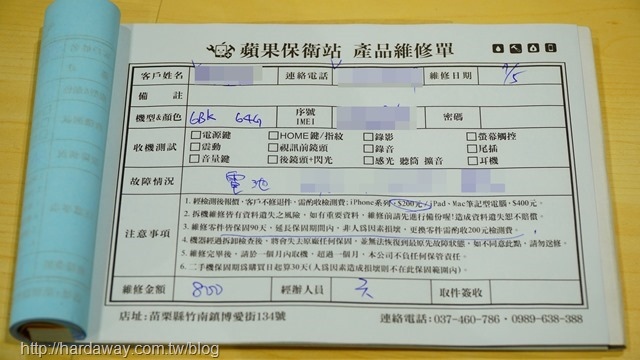 蘋果保衛站 產品維修單
客戶姓名 連絡電話 維修日期 7/5
備 註
機型&顏色 6BK 64G 序號 IMEI 密碼
收機測試 □電源鍵 □HOME鍵/指紋 □錄影 □螢幕觸控
□震動 □視訊前鏡頭 □錄音 □尾插
□音量鍵 □後鏡頭+閃光 □感光 聽筒 擴音 □耳機
故障情況 電池
注意事項
1. 經檢測後報價，客戶不修退件，需酌收檢測費：iPhone系列，$200元，iPad、Mac筆記型電腦，$400元。
2. 拆機維修皆有資料遺失之風險，如有重要資料，維修前請先進行備份喔！造成資料遺失恕不賠償。
3. 維修零件皆保固90天，延長保固期間內，非人為因素損壞，更換零件需酌收200元檢測費。
4. 機器經過拆卸檢查後，將會失去原廠任何保固，並無法恢復到最原先故障狀態，如不同意此點，請勿送修。
5. 維修完畢後，請於一個月內取機，超過一個月，本公司不負任何保管責任。
6. 二手機保固期為購買日起算30天(人為因素造成損壞則不在此保固範圍內)。
維修金額 800 經辦人員 取件簽收
店址：苗栗縣竹南鎮博愛街134號 連絡電話：037-460-786．0989-638-388
http://hardaway.com.tw/blog